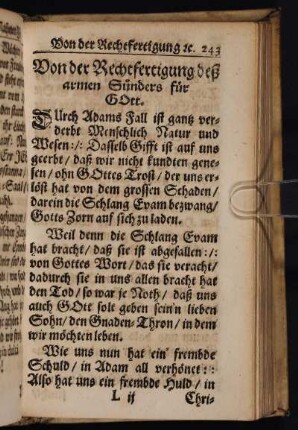 Von der Rechtfertigung ꝛc. 243
Von der Rechtfertigung deß
armen Sünders für
GOtt.
DUrch Adams Fall ist gantz ver-
derbt Menschlich Natur und
Wesen :/: Dasselb Gifft ist auf uns
geerbt / daß wir nicht kundten gene-
sen / ohn GOttes Trost / der uns er-
löst hat von dem grossen Schaden /
darein die Schlang Evam bezwang /
Gotts Zorn auf sich zu laden.
Weil denn die Schlang Evam
hat bracht / daß sie ist abgefallen :/:
von Gottes Wort / das sie veracht /
dadurch sie in uns allen bracht hat
den Tod / so war je Noth / daß uns
auch GOtt solt geben sein'n lieben
Sohn / den Gnaden-Thron / in dem
wir möchten leben.
Wie uns nun hat ein' frembde
Schuld / in Adam all verhönet :/:
Also hat uns ein frembde Huld / in
L ij Chri-